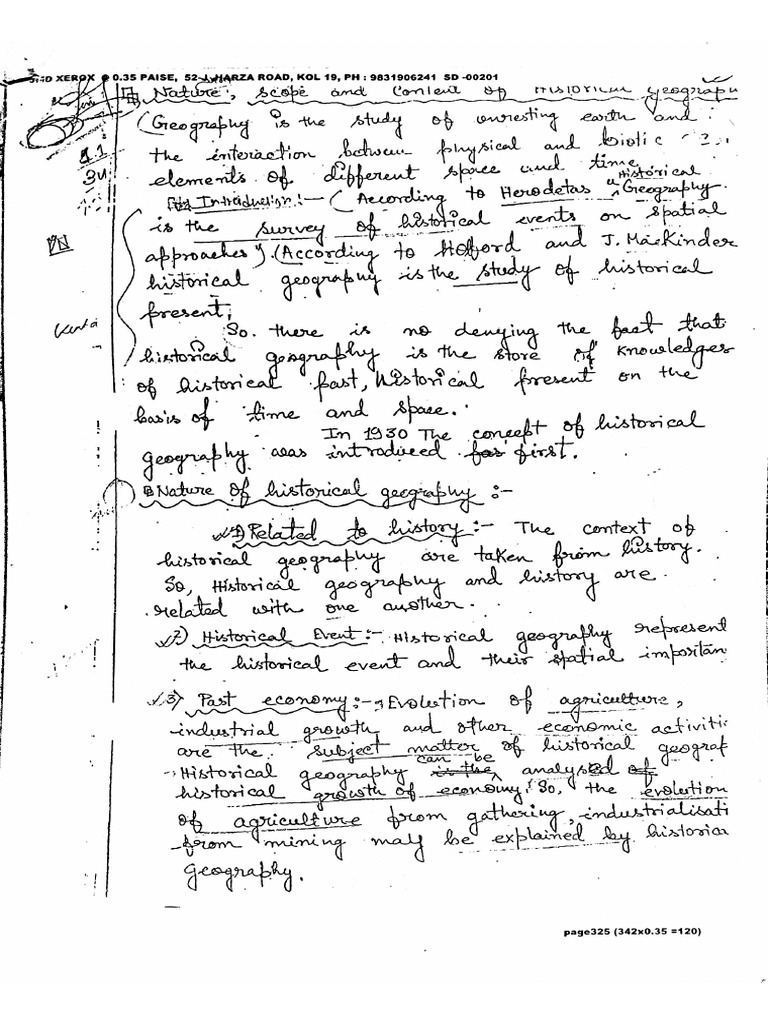 XEROX @ 0.35 PAISE, 52 HARZA ROAD, KOL 19, PH : 9831906241 SD -00201
Nature, scope and Content of Historical Geograph
(Geography is the study of unresting earth and
the interaction between physical and biotic
elements of different space and time
Introduction :- (According to Herodetas "Historical Geography
is the survey of historical events on spatial
approaches"). (According to Hoford and J. Mackinder
historical geography is the study of historical
present,
So. there is no denying the fact that
historical geography is the store of Knowledges
of historical past, historical present on the
basis of time and space.
In 1930 The concept of historical
geography was introduced for first.
Nature of historical geography :-
1) Related to history :- The context of
historical geography are taken from history.
So, Historical geography and history are
related with one another.
2) Historical Event :- Historical geography represent
the historical event and their spatial importan
3) Past economy :- Evolution of agriculture,
industrial growth and other economic activiti
are the subject matter of historical geograp
Historical geography is the can be analysed of
historical growth of economy. So, the evolution
of agriculture from gathering, industrialisati
from mining may be explained by historica
Geography.
page325 (342x0.35 =120)